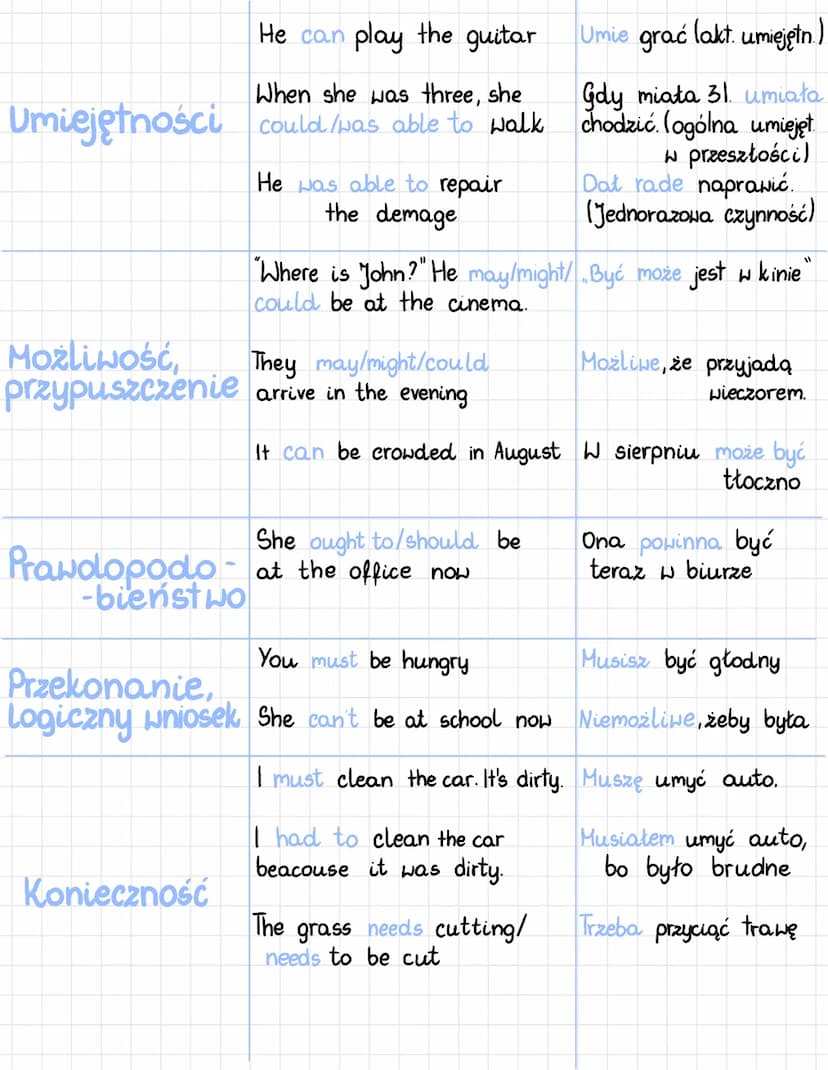 He can play the guitar
Umie grać (akt. umiejętn.)
Umiejętności
When she was three, she
could/was able to walk
Gdy miała 3l. umiała
chodzić. (ogólna umiejęt.
w przeszłości)
He was able to repair
the demage
Dał radę naprawić.
(Jednorazowa czynność)
Możliwość,
przypuszczenie
"Where is John?" He may/might/
could be at the cinema.
„Być może jest w kinie"
They may/might/could
arrive in the evening
Możliwe, że przyjadą
wieczorem.
It can be crowded in August
W sierpniu może być
tłoczno
Prawdopodo-
-bieństwo
She ought to/should be
at the office now
Ona powinna być
teraz w biurze
Przekonanie,
logiczny wniosek
You must be hungry
Musisz być głodny
She can't be at school now
Niemożliwe, żeby była
Konieczność
I must clean the car. It's dirty.
Muszę umyć auto.
I had to clean the car
beacouse it was dirty.
Musiałem umyć auto,
bo było brudne
The grass needs cutting/
needs to be cut
Trzeba przyciąć trawę